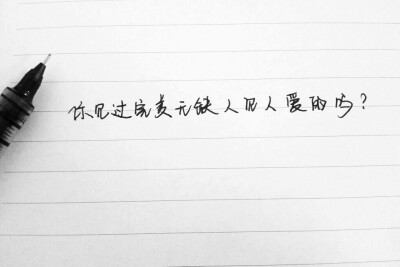 你见过完美无缺人见人爱的吗？